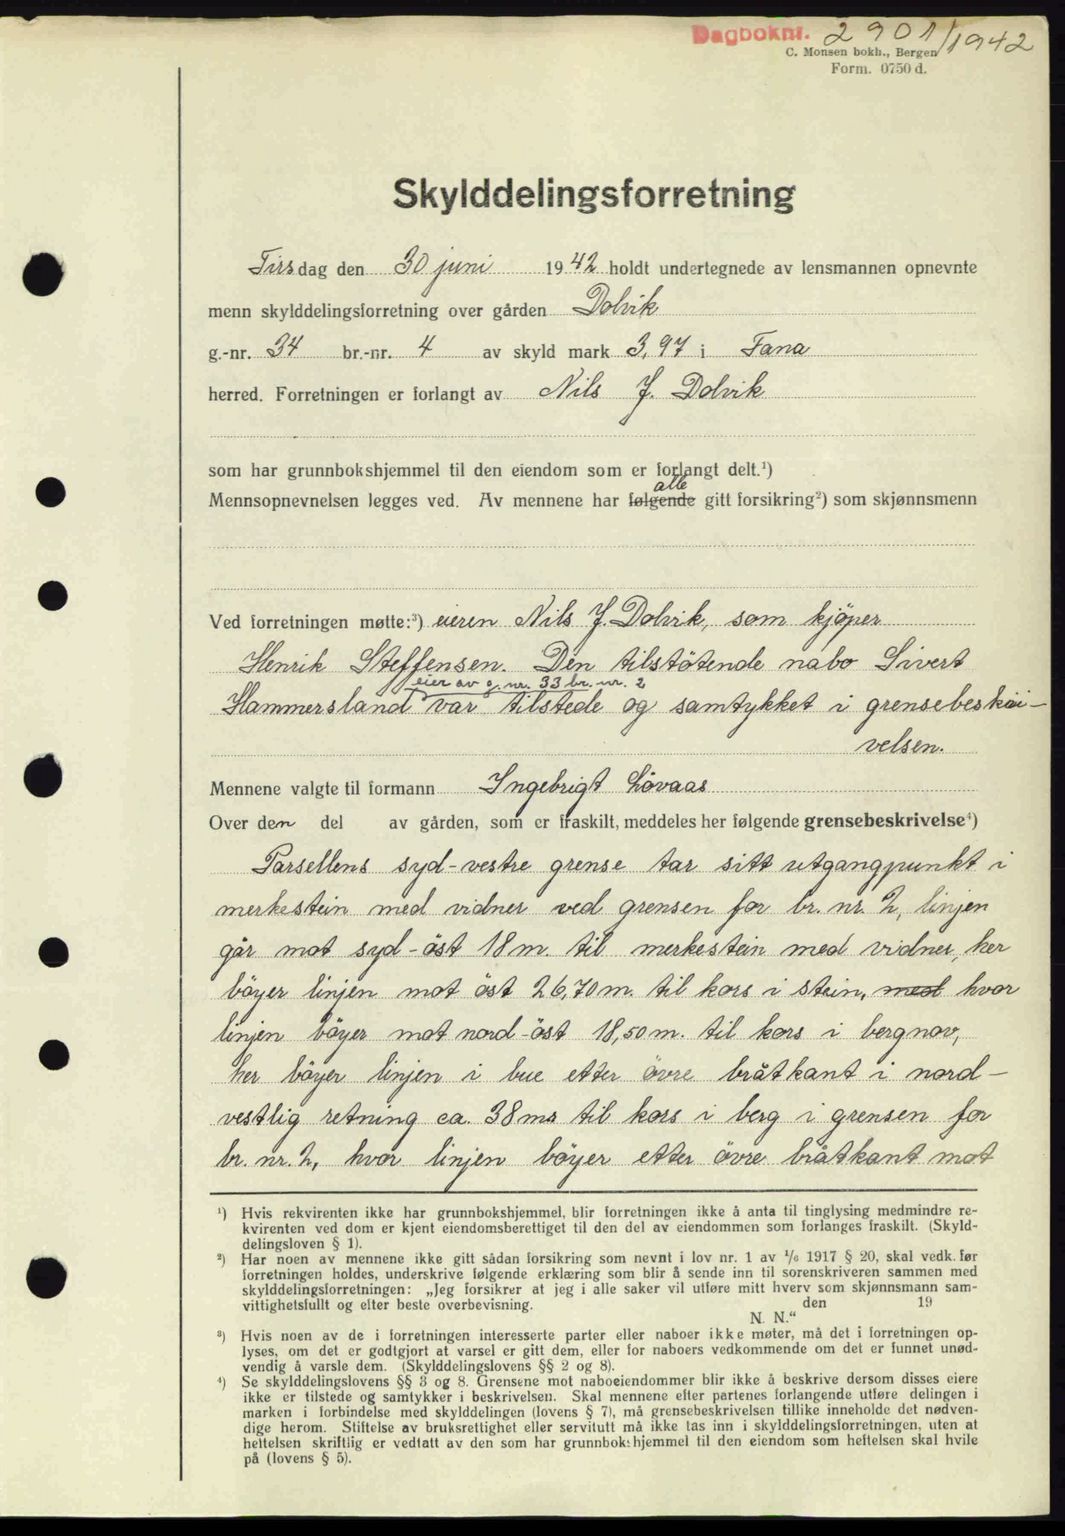 Dagboknr. 2901/1942
C. Monsen bokh., Bergen
Form. 0750 d.
Skylddelingsforretning
Tirsdag den 30 juni 1942 holdt undertegnede av lensmannen opnevnte
menn skylddelingsforretning over gården Dolvik
g.-nr. 34 br.-nr. 4 av skyld mark 3,97 i Fana
herred. Forretningen er forlangt av Nils J. Dolvik
som har grunnbokshjemmel til den eiendom som er forlangt delt.¹)
alle
Mennsopnevnelsen legges ved. Av mennene har følgende gitt forsikring²) som skjønnsmenn
Ved forretningen møtte:³) eieren Nils J. Dolvik, som kjöper
Henrik Steffensen. Den tilstötende nabo Sivert
eier av g. nr. 33 br. nr. 2
Hammersland var tilstede og samtykket i grensebeskri-
velsen.
Mennene valgte til formann Ingebrigt Lövaas
Over den del av gården, som er fraskilt, meddeles her følgende grensebeskrivelse⁴)
Parsellens syd-vestre grense tar sitt utgangpunkt i
merkestein med vidner ved grensen for br. nr. 2, linjen
går mot syd-öst 18 m. til merkestein med vidner, her
böyer linjen mot öst 26,70 m. til kors i stein, med hvor
linjen böyer mot nord-öst 18,50 m. til kors i bergnov,
her böyer linjen i bue etter övre bråtkant i nord-
vestlig retning ca. 38 m. til kors i berg i grensen for
br. nr. 2, hvor linjen böyer etter övre bråtkant mot
¹) Hvis rekvirenten ikke har grunnbokshjemmel, blir forretningen ikke å anta til tinglysing medmindre re-
kvirenten ved dom er kjent eiendomsberettiget til den del av eiendommen som forlanges fraskilt. (Skyld-
delingsloven § 1).
²) Har noen av mennene ikke gitt sådan forsikring som nevnt i lov nr. 1 av 1/6 1917 § 20, skal vedk. før
forretningen holdes, underskrive følgende erklæring som blir å sende inn til sorenskriveren sammen med
skylddelingsforretningen: „Jeg forsikrer at jeg i alle saker vil utføre mitt hverv som skjønnsmann sam-
vittighetsfullt og etter beste overbevisning. den 19
N. N.“
³) Hvis noen av de i forretningen interesserte parter eller naboer ikke møter, må det i forretningen op-
lyses, om det er godtgjort at varsel er gitt dem, eller for naboers vedkommende om det er funnet unød-
vendig å varsle dem. (Skylddelingslovens §§ 2 og 8).
⁴) Se skylddelingslovens §§ 3 og 8. Grensene mot naboeiendommer blir ikke å beskrive dersom disses eiere
ikke er tilstede og samtykker i beskrivelsen. Skal mennene efter partenes forlangende utføre delingen i
marken i forbindelse med skylddelingen (lovens § 7), må grensebeskrivelsen tillike inneholde det nødven-
dige herom. Stiftelse av bruksrettighet eller servitutt må ikke tas inn i skylddelingsforretningen, uten at
heftelsen skriftlig er vedtatt av den som har grunnbokshjemmel til den eiendom som heftelsen skal hvile
på (lovens § 5).